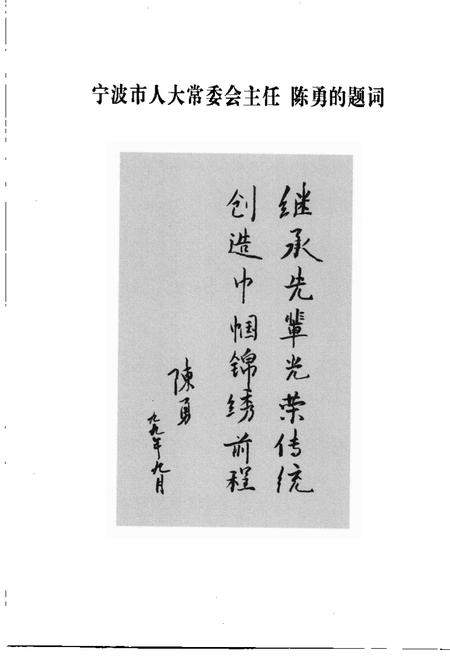 宁波市人大常委会主任 陈勇的题词
继承先輩光荣传统
创造巾帼锦绣前程
陳勇
九九年九月